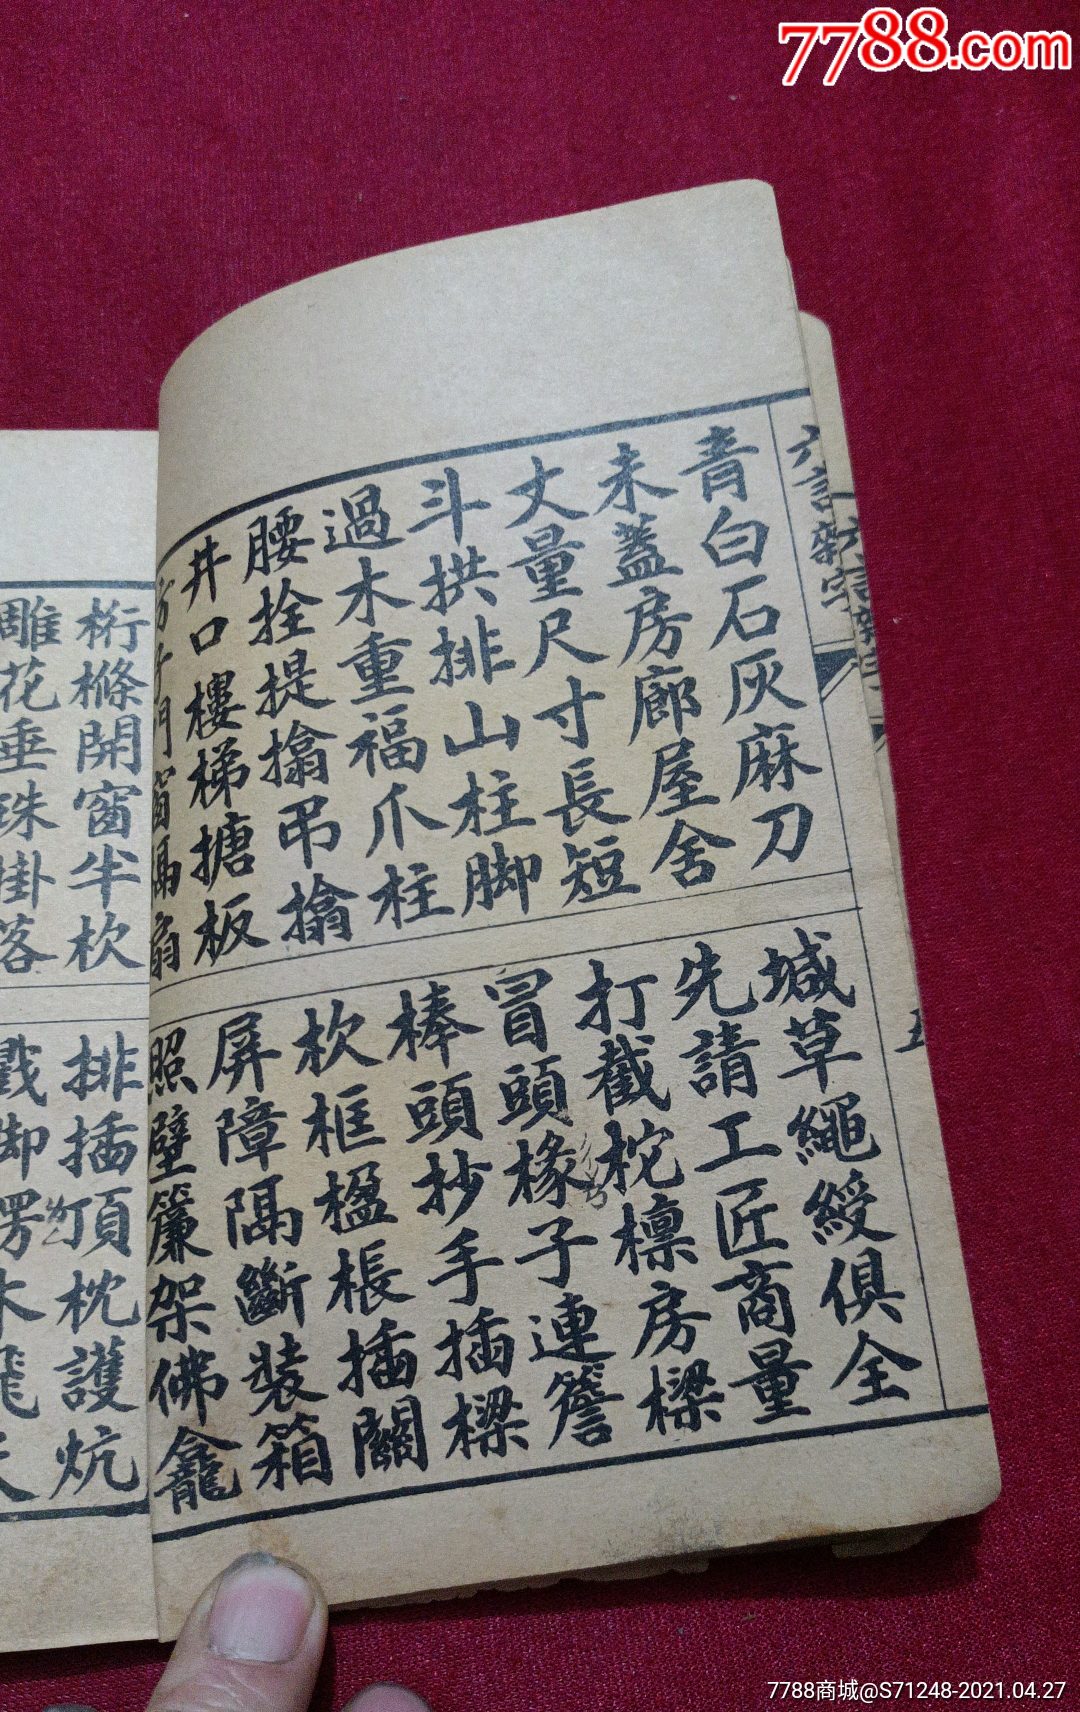 7788.com
六言雜字
青白石灰麻刀
堿草繩綬俱全
未蓋房廊屋舍
先請工匠商量
丈量尺寸長短
打截柁檩房樑
斗拱排山柱脚
冒頭椽子連簷
過木重福爪柱
棒頭抄手插樑
腰拴提擒吊擒
杴框楹棖插關
井口樓梯搪板
屏障隔斷裝箱
門窗隔扇
照壁簾架佛龕
五
桁條開窗半杴
排插頂枕護炕
雕花垂珠掛落
7788商城@S71248-2021.04.27